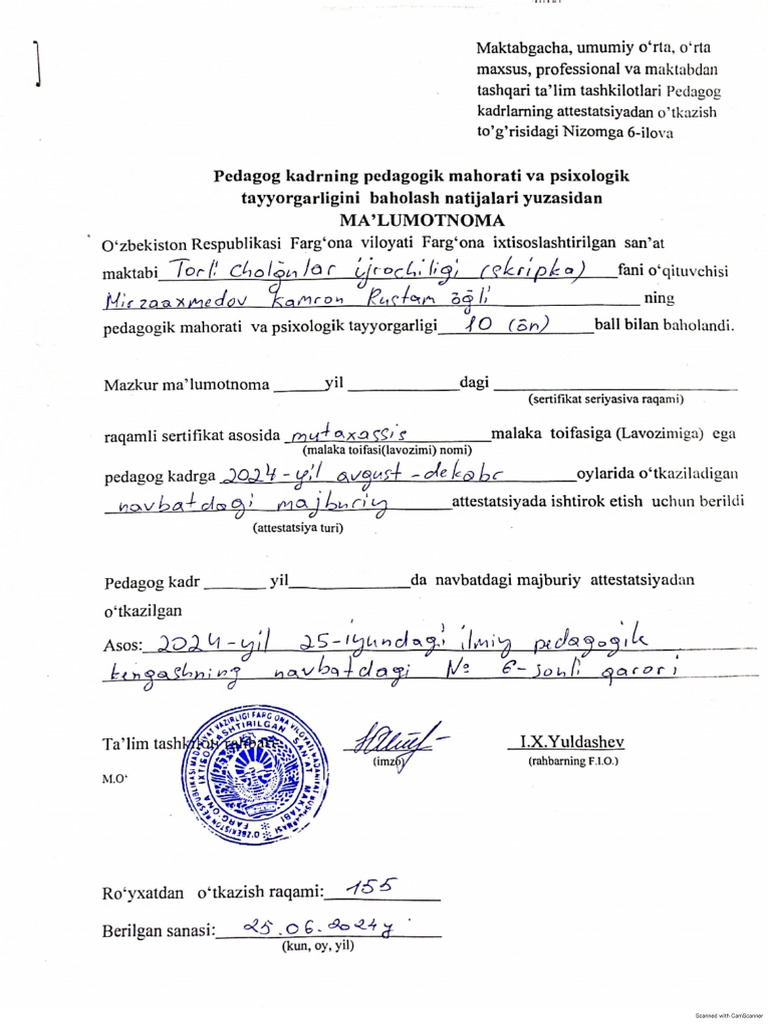 Maktabgacha, umumiy o‘rta, o‘rta
maxsus, professional va maktabdan
tashqari ta’lim tashkilotlari Pedagog
kadrlarning attestatsiyadan o’tkazish
to’g’risidagi Nizomga 6-ilova
Pedagog kadrning pedagogik mahorati va psixologik
tayyorgarligini baholash natijalari yuzasidan
MA’LUMOTNOMA
O‘zbekiston Respublikasi Farg‘ona viloyati Farg‘ona ixtisoslashtirilgan san’at
maktabi Torli cholḡular ijrochiligi (skripka) fani o‘qituvchisi
Mirzaaxmedov Kamron Rustam ōḡli ning
pedagogik mahorati va psixologik tayyorgarligi 10 (ōn) ball bilan baholandi.
Mazkur ma’lumotnoma ______yil ______dagi ______
(sertifikat seriyasiva raqami)
raqamli sertifikat asosida mutaxassis malaka toifasiga (Lavozimiga) ega
(malaka toifasi(lavozimi) nomi)
pedagog kadrga 2024-yil avgust-dekabr oylarida o‘tkaziladigan
navbatdagi majburiy attestatsiyada ishtirok etish uchun berildi
(attestatsiya turi)
Pedagog kadr ______ yil______da navbatdagi majburiy attestatsiyadan
o‘tkazilgan
Asos: 2024-yil 25-iyundagi ilmiy pedagogik
kengashning navbatdagi № 6-sonli qarori
Ta’lim tashkiloti rahbari I.X.Yuldashev
(imzo) (rahbarning F.I.O.)
M.O‘
Ro‘yxatdan o‘tkazish raqami: 155
Berilgan sanasi: 25.06.2024y
(kun, oy, yil)
Scanned with CamScanner